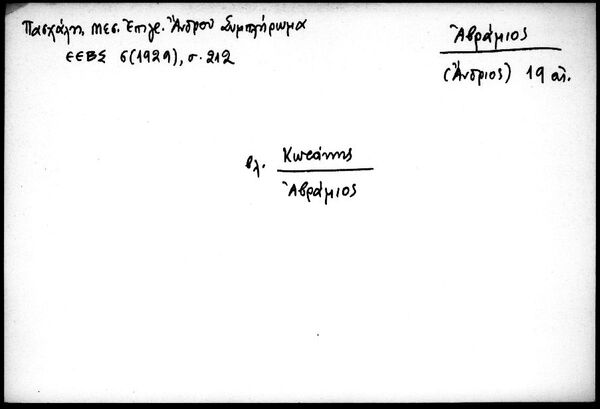 Πασχάλη, Μεσ. Ἐπιγρ. Ἄνδρου Συμπλήρωμα
ΕΕΒΣ 6(1929), σ. 212
Ἀβράμιος
(Ἄνδριος) 19 αἰ.
βλ. Κωτάκης
Ἀβράμιος